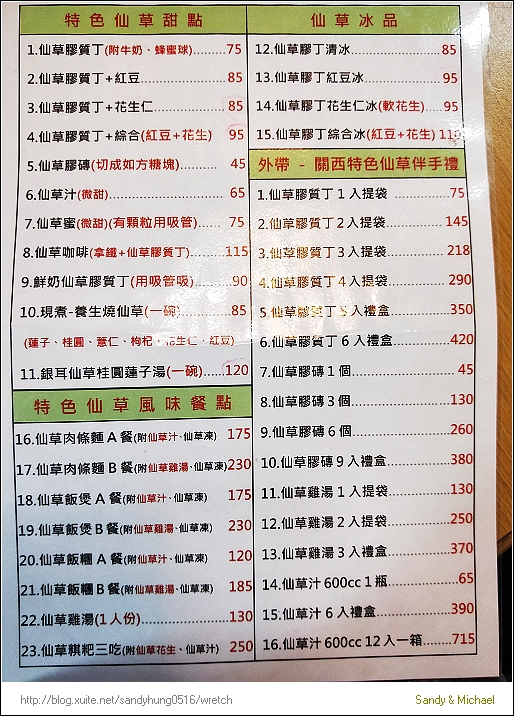 特色仙草甜點
1.仙草膠質丁(附牛奶、蜂蜜球).........75
2.仙草膠質丁+紅豆 85
3.仙草膠質丁+花生仁 85
4.仙草膠質丁+綜合(紅豆+花生) 95
5.仙草膠磚(切成如方糖塊)........... 45
6.仙草汁(微甜)............................. 65
7.仙草蜜(微甜)(有顆粒用吸管)...... 75
8.仙草咖啡(拿鐵+仙草膠質丁)........115
9.鮮奶仙草膠質丁(用吸管吸).........90
10.現煮-養生燒仙草(一碗) 85
(蓮子、桂圓、薏仁、枸杞、花生仁、紅豆)
11.銀耳仙草桂圓蓮子湯(一碗)....120
特色仙草風味餐點
16.仙草肉條麵A餐(附仙草汁、仙草凍) 175
17.仙草肉條麵B餐(附仙草雞湯、仙草凍)230
18.仙草飯煲A餐(附仙草汁、仙草凍) 175
19.仙草飯煲B餐(附仙草雞湯、仙草凍) 230
20.仙草飯糰A餐(附仙草汁、仙草凍) 120
21.仙草飯糰B餐(附仙草雞湯、仙草凍) 185
22.仙草雞湯(1人份)......................130
23.仙草粿粑三吃(附仙草花生、仙草汁) 250
仙草冰品
12.仙草膠丁清冰......................85
13.仙草膠丁紅豆冰..................95
14.仙草膠丁花生仁冰(軟花生).....95
15.仙草膠丁綜合冰(紅豆+花生) 110
外帶 - 關西特色仙草伴手禮
1.仙草膠質丁1入提袋 ..............75
2.仙草膠質丁2入提袋 ............145
3.仙草膠質丁3入提袋 ............218
4.仙草膠質丁4入提袋 ............290
5.仙草膠質丁5入禮盒............350
6.仙草膠質丁6入禮盒............420
7.仙草膠磚1個..........................45
8.仙草膠磚3個........................130
9.仙草膠磚6個........................260
10.仙草膠磚9入禮盒................380
11.仙草雞湯1入提袋................130
12.仙草雞湯2入提袋................250
13.仙草雞湯3入禮盒................370
14.仙草汁600cc 1瓶..................65
15.仙草汁6入禮盒....................390
16.仙草汁600cc 12入一箱.........715
http://blog.xuite.net/sandyhung0516/wretch
Sandy & Michael